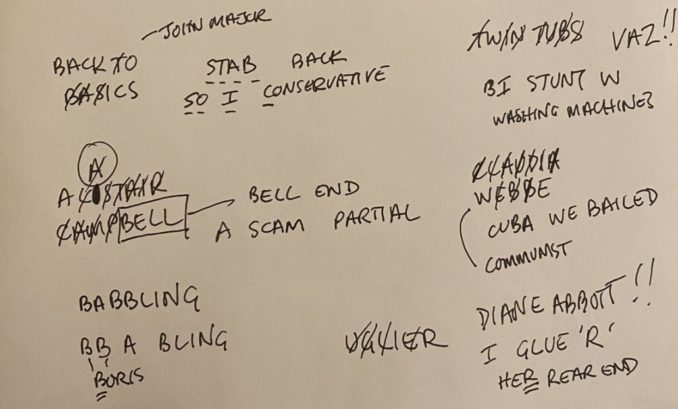 JOHN MAJOR
BACK TO
BASICS
STAB BACK
SO I CONSERVATIVE
A
ALISTAIR
CAMPBELL
BELL END
A SCAM PARTIAL
BABBLING
BB A BLING
BORIS
TWIN TUBS VAZ!!
BI STUNT W
WASHING MACHINES
CLAUDIA
WEBBE
CUBA WE BAILED
COMMUNST
DIANE ABBOTT!!
UGLIER
I GLUE 'R'
HER REAR END